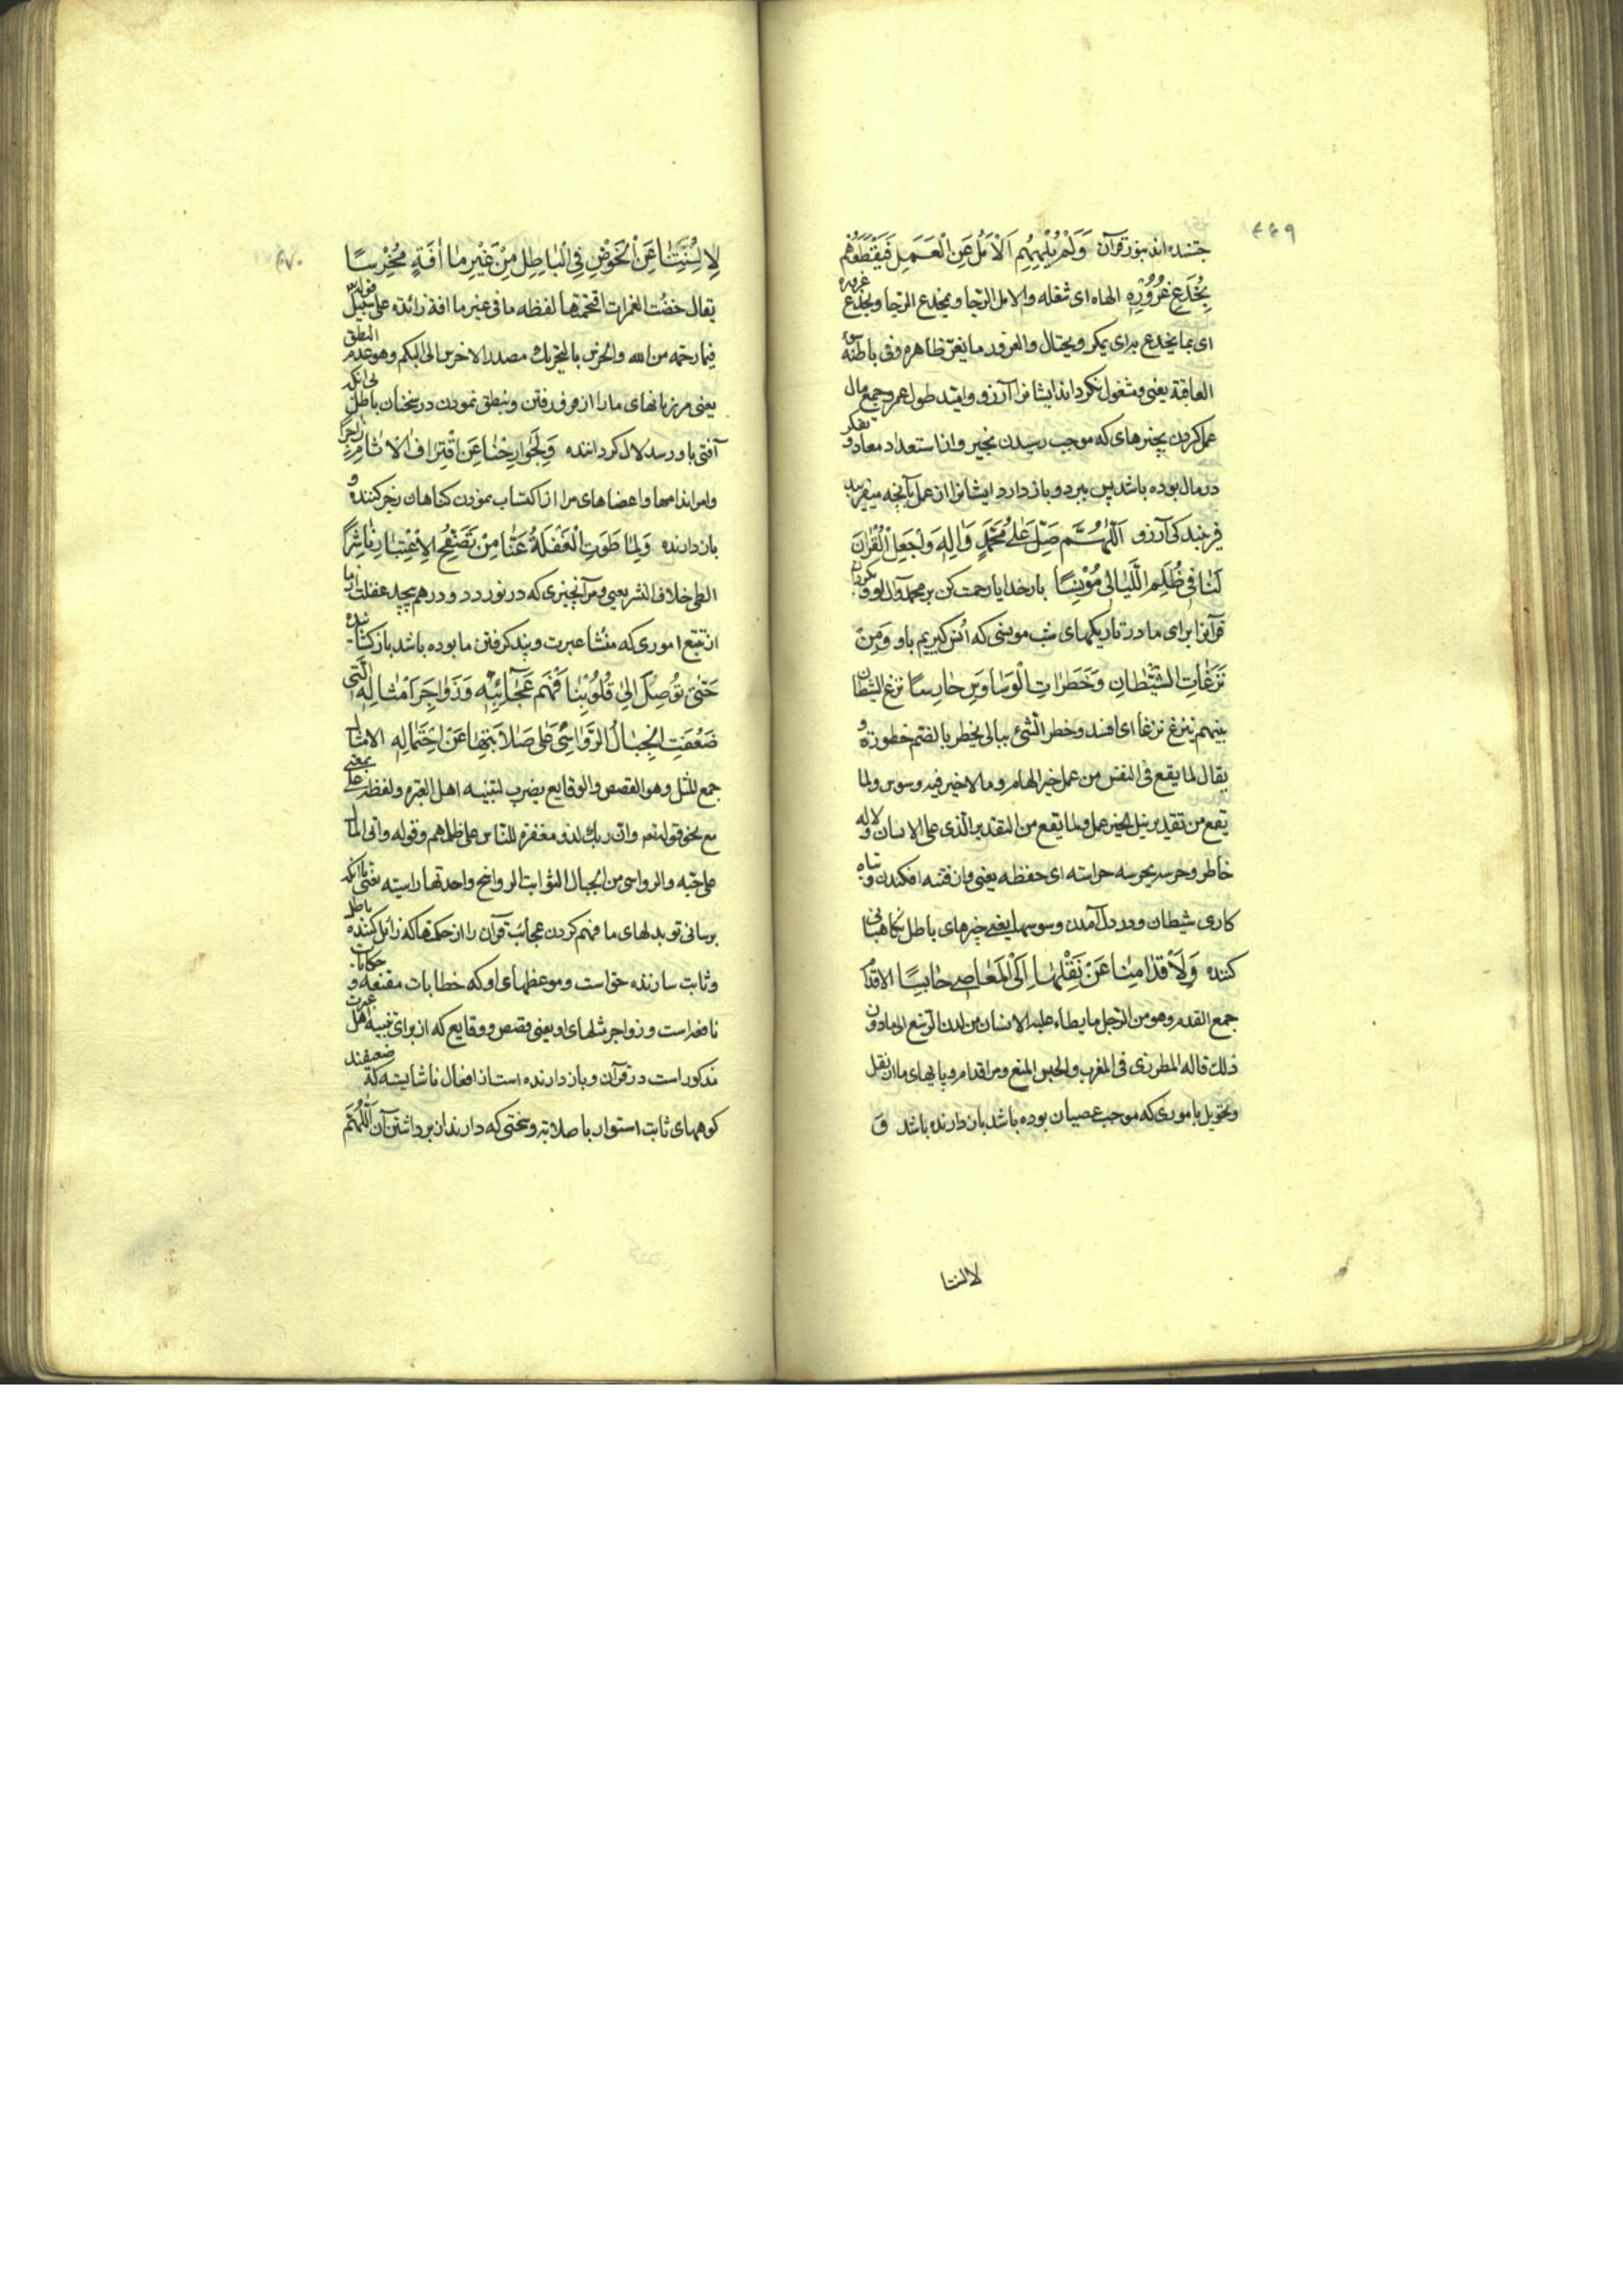 ۴۴۹
جسته‌اند بنور قرآن وَلَمْ يُلْهِهِم اَلْاَمَلُ عَنِ الْعَمَلِ فَيَقْطَعُهُم
بِخُدَعِ غُرُورِهِ الهاه ای شغله والامل الرجا و یخدع الرجا وبخدع غروره
ای بما یخدع برای یمکر ویحتال والغرور ما یغرّ ظاهره وفی باطنه سوء
العاقبة یعنی ومشغول نکرداند ایشانرا آرزو وامید طول عمر وجمع مال
عمل کردن بچیزهای که موجب رسیدن بخیر وانا استعداد معاد و تفکر
در مال بوده باشد پس ببرد و باز دارد ایشانرا از عمل بآنچه میفریبد
فریبندکی آرزو اَللّهُمَّ صَلِّ عَلی مُحَمَّدٍ وَالِهِ وَاجْعَلِ الْقُرْانَ
لَنا فی ظُلَمِ اللَّیالی مُوْنِسًا بار خدایا رحمت کن بر محمد وآل او و بکردان
قرآنرا برای ما در تاریکیهای شب مونسی که انس کیریم باو وَمِنْ
نَزَغاتِ الشَّیْطانِ وَخَطَراتِ الْوَساوِسِ حارِسًا نزغ الشیطان
بینهم ینزغ نزغا ای افسد وخطر الشئ ببالی یخطر بالضم خطورا و
یقال لما یقع فی النفس من عمل خیر الهام وما لا خیر فیه وسوس ولما
یقع من تقدیر نیل الخیر عمل ولما یقع من التقدیر الذی علی الانسان ولا له
خاطر وحرسه یحرسه حراسته ای حفظه یعنی وان فتنه افکندن و تباه
کاری شیطان ودر دل آمدن وسوسها یعنی چیزهای باطل نکاهبانی
کننده وَلِاَقْدامِنا عَنْ نَقْلِها اِلَی الْمَعاصی حابِسًا الاقدام
جمع القدم وهو من الرجل ما یطاء علیه الانسان من لدن الرسغ الی ما دون
ذلک قاله المطرزی فی المغرب والحبس المنع ومر اقدام وپایهای ما از نقل
وتحویل باموری که موجب عصیان بوده باشد باز دارنده باشد وَ
لالسنتا
۴۷۰
لِاَلْسِنَتِنا عَنِ الْخَوْضِ فِی الْباطِلِ مِنْ غَیْرِ ما افَةٍ مُخْرِسًا
یقال خضت الغمرات اقتحمتها لفظه ما فی غیر ما افة زائده علی سبیل قوله
فبما رحمة من الله والخرس بالتحریک مصدر الاخرس ای البکم وهو عدم النطق
یعنی مر زبانهای ما را از فرو رفتن ونطق نمودن در سخنان باطل بی آنکه
آفتی باو رسد لال کرداننده وَلِجَوارِحِنا عَنِ اقْتِرافِ الْاثامِ زاجِرًا
ومر اندامها واعضاهای مرا از اکتساب نمودن کناهان زجر کننده و
باز دارنده وَلِما طَوَتِ الْغَفْلَةُ عَنّا مِنْ تَصَفُّحِ الْاِعْتِبارِ ناشِرًا
الطی خلاف النشر یعنی ومر آنچیزی که در نوردد ودر هم پیچد غفلت از ما
از تتبع اموری که منشا عبرت وپند کرفتن ما بوده باشد باز کشاینده
حَتّی تُوصِلَ اِلی قُلُوبِنا فَهْمَ عَجآئِبِهِ وَزَواجِرَ اَمْثالِهِ الَّتی
ضَعُفَتِ الْجِبالُ الرَّواسِی عَلی صَلابَتِها عَنِ احْتِمالِهِ الامثال
جمع المثل وهو القصص والوقایع یضرب لتنبیه اهل العبره ولفظه علی بمعنی
مع نحو قوله تعم وان ربک لذو مغفرة للناس علی ظلمهم وقوله واتی المال
علی حبه والرواسی من الجبال الثوابت الرواسخ واحدتها راسیته یعنی تا آنکه
برسانی تو بدلهای ما فهم کردن عجائب قرآن را از حکمتها که زائل کننده باطل
وثابت سازنده حق است وموعظهای او که خطابات مقنعه و حکایات
نافعه است وزواجر مثلهای او یعنی قصص ووقایع که از برای تنبیه اهل عبرت
مذکور است در قرآن وباز دارنده است از افعال ناشایسته که ضعیفند
کوههای ثابت استوار با صلابته وسختی که دارند از برداشتن آن اَللّهُمَّ